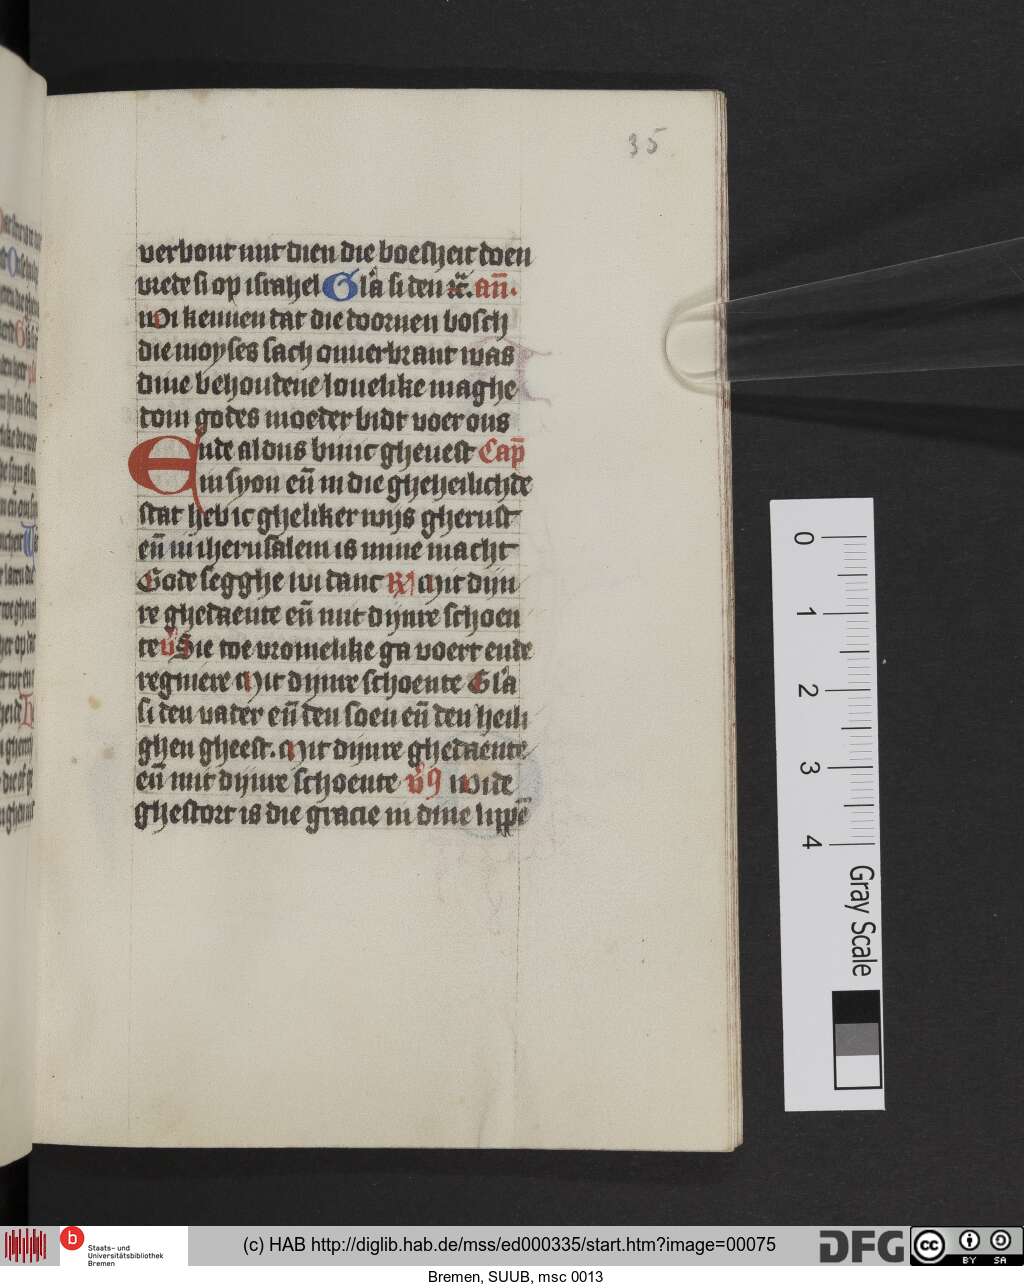 35
verbont mit dien die boesheit doen
vrede si op israhel Gl̄a si den ꝛc̄. an̄.
Wi kennen dat die doornen bosch
die moyses sach onuerbrant was
dine behoudene louelike maghe
dom godes moeder bidt voer ons
Ende aldus bin ic gheuest Cap̄
in syon en̄ in die gheheilichde
stat heb ic ghelikerwijs gherust
en̄ in iherusalem is mine macht
Gode segghe wi danc R̸ Mit dijn
re ghedaente en̄ mit dijnre schoen
te v̄s Sie toe vromelike ga voert ende
regniere Mit dijnre schoente Gl̄a
si den vader en̄ den soen en̄ den heili
ghen gheest. Mit dijnre ghedaente
en̄ mit dijnre schoente v̄s Wide
ghestort is die gracie in dine lippē
0
1
2
3
4
Gray Scale
b Staats- und
Universitätsbibliothek
Bremen
(c) HAB http://diglib.hab.de/mss/ed000335/start.htm?image=00075
DFG
cc BY SA
Bremen, SUUB, msc 0013